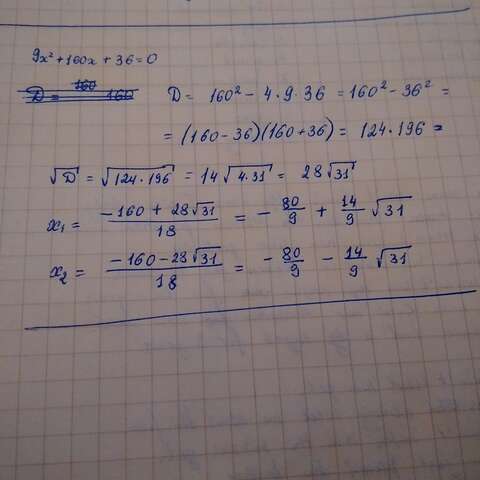 9x² + 160x + 36 = 0
D = 160² - 4 · 9 · 36 = 160² - 36² =
= (160 - 36)(160 + 36) = 124 · 196 =
√D = √124 · 196 = 14√4 · 31 = 28√31
x₁ = (-160 + 28√31)/18 = - 80/9 + 14/9 √31
x₂ = (-160 - 28√31)/18 = - 80/9 - 14/9 √31